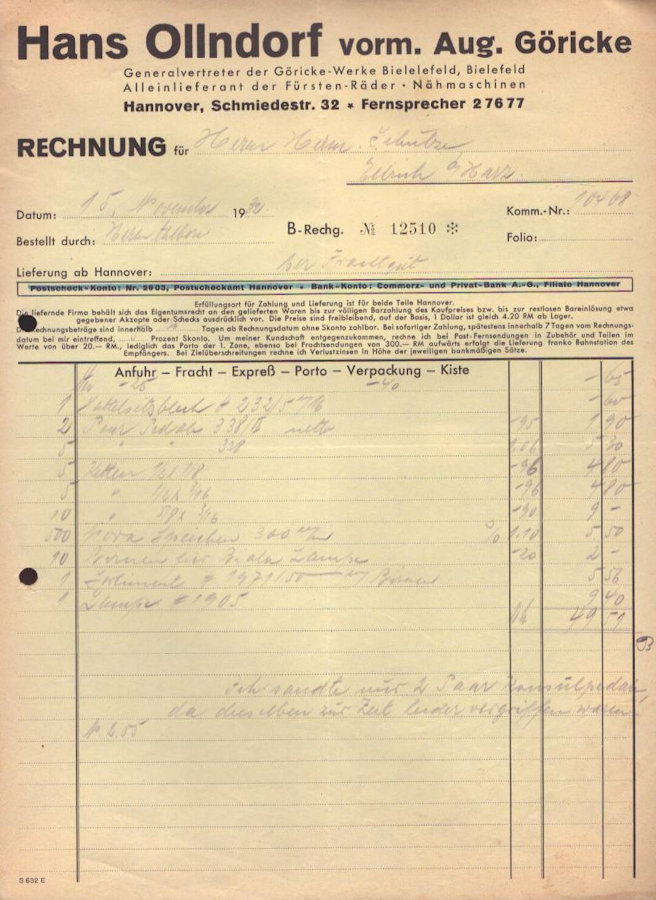 Hans Ollndorf vorm. Aug. Göricke
Generalvertreter der Göricke-Werke Bielelefeld, Bielefeld
Alleinlieferant der Fürsten-Räder · Nähmaschinen
Hannover, Schmiedestr. 32 * Fernsprecher 27677
RECHNUNG für Herrn Herm. Schulze
Ellrich a/Harz.
Datum: 15. November 19
Komm.-Nr.:
Bestellt durch: Herrn
B-Rechg. № 12510 *
Folio:
Lieferung ab Hannover: per Frachtgut
Postscheck-Konto: Nr. 2903, Postscheckamt Hannover * Bank-Konto: Commerz- und Privat-Bank A.-G., Filiale Hannover
Erfüllungsort für Zahlung und Lieferung ist für beide Teile Hannover.
Die liefernde Firma behält sich das Eigentumsrecht an den gelieferten Waren bis zur völligen Bezahlung des Kaufpreises bzw. bis zur restlosen Bareinlösung etwa
gegebener Akzepte oder Schecks ausdrücklich vor. Die Preise sind freibleibend, auf der Basis, 1 Dollar ist gleich 4.20 RM ab Lager.
Rechnungsbeträge sind innerhalb Tagen ab Rechnungsdatum ohne Skonto zahlbar. Bei sofortiger Zahlung, spätestens innerhalb 7 Tagen vom Rechnungs-
datum bei mir eintreffend, Prozent Skonto. Um meiner Kundschaft entgegenzukommen, rechne ich bei Post-Fernsendungen in Zubehör und Teilen im
Werte von über 20.— RM., lediglich das Porto der 1. Zone, ebenso bei Frachtsendungen von 300.— RM aufwärts erfolgt die Lieferung franko Bahnstation des
Empfängers. Bei Zielüberschreitungen rechne ich Verlustzinsen in Höhe der jeweiligen bankmäßigen Sätze.
Anfuhr — Fracht — Expreß — Porto — Verpackung — Kiste
-25 -40 -65
1 Sattelsitzblech # 232/5 -60
2 Paar Pedale 338/ netto -95 1 90
5 " " 328 1.06 5 30
5 Ketten 1/2 x 1/8 -96 4 80
5 " 3/16 -96 4 80
10 " 5/8 x 3/16 -90 9 -
500 Nova Speichen 300 % 1.10 5 50
10 Birnen -20 2 -
1 # 1971/50 Birnen 5 56
1 Lampe # 1905 9 40
49 51
Ich sandte nur 2 Paar Konsulpedale,
da dieselben zur Zeit leider vergriffen waren.
2.55
S 632 E